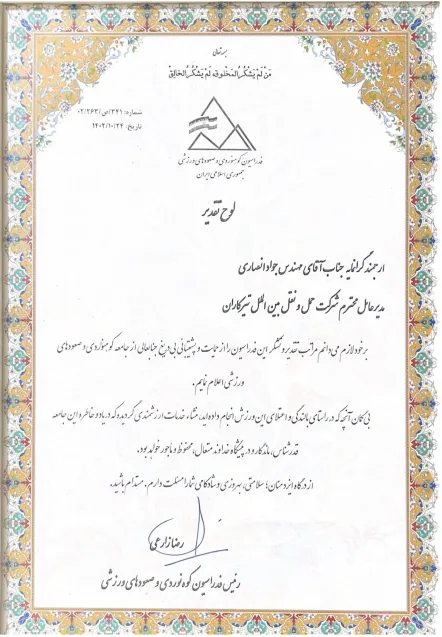 بسمه تعالی
مَن لَم یَشکُرِ المَخلوق لَم یَشکُرِ الخالِق
شماره: ۳۴۱/ص/۰۲/۲۶۳
تاریخ: ۱۴۰۲/۱۰/۲۴
فدراسیون کوهنوردی و صعودهای ورزشی
جمهوری اسلامی ایران
لوح تقدیر
ارجمند گرانمایه جناب آقای مهندس جواد انصاری
مدیرعامل محترم شرکت حمل و نقل بین الملل تیزکاران
بر خود لازم می دانم مراتب تقدیر و تشکر این فدراسیون را از حمایت و پشتیبانی بی دریغ جنابعالی از جامعه کوهنوردی و صعودهای
ورزشی اعلام نمایم.
بی گمان آنچه که در راستای بالندگی و اعتلای این ورزش انجام داده اید، منشاء خدمات ارزشمندی گردیده که در یاد و خاطر این جامعه
قدرشناس، ماندگار و در پیشگاه خداوند متعال، محفوظ و ماجور خواهد بود.
از درگاه ایزد منان؛ سلامتی، بهروزی و شادکامی شما را مسئلت دارم. مستدام باشید.
رضا زارعی
رئیس فدراسیون کوه نوردی و صعودهای ورزشی